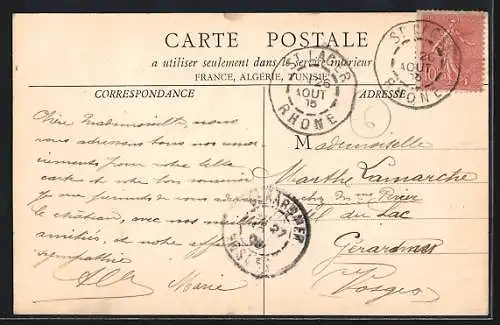 CARTE POSTALE
a utiliser seulement dans le service intérieur
FRANCE, ALGÉRIE, TUNISIE
CORRESPONDANCE
ADRESSE
Chère Mademoiselle, nous
vous adressons bons nos remer-
ciements pour votre belle
carte et de bon souvenir
Je me permets de vous adresser
le château, avec nos meilleures
amitiés, et de notre affectueuse
sympathie
Marie
Mademoiselle
Marthe Lamarche
chez de me Périer
du Lac
Gérardmer
Vosges
ST LAGER
26
AOUT
RHONE
AOUT
RHONE
GERARDMER
27
VOSGES
10
6